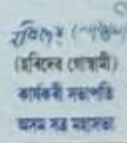 (হৰিদেৱ গোস্বামী)
কাৰ্যকৰী সভাপতি
অসম সত্ৰ মহাসভা